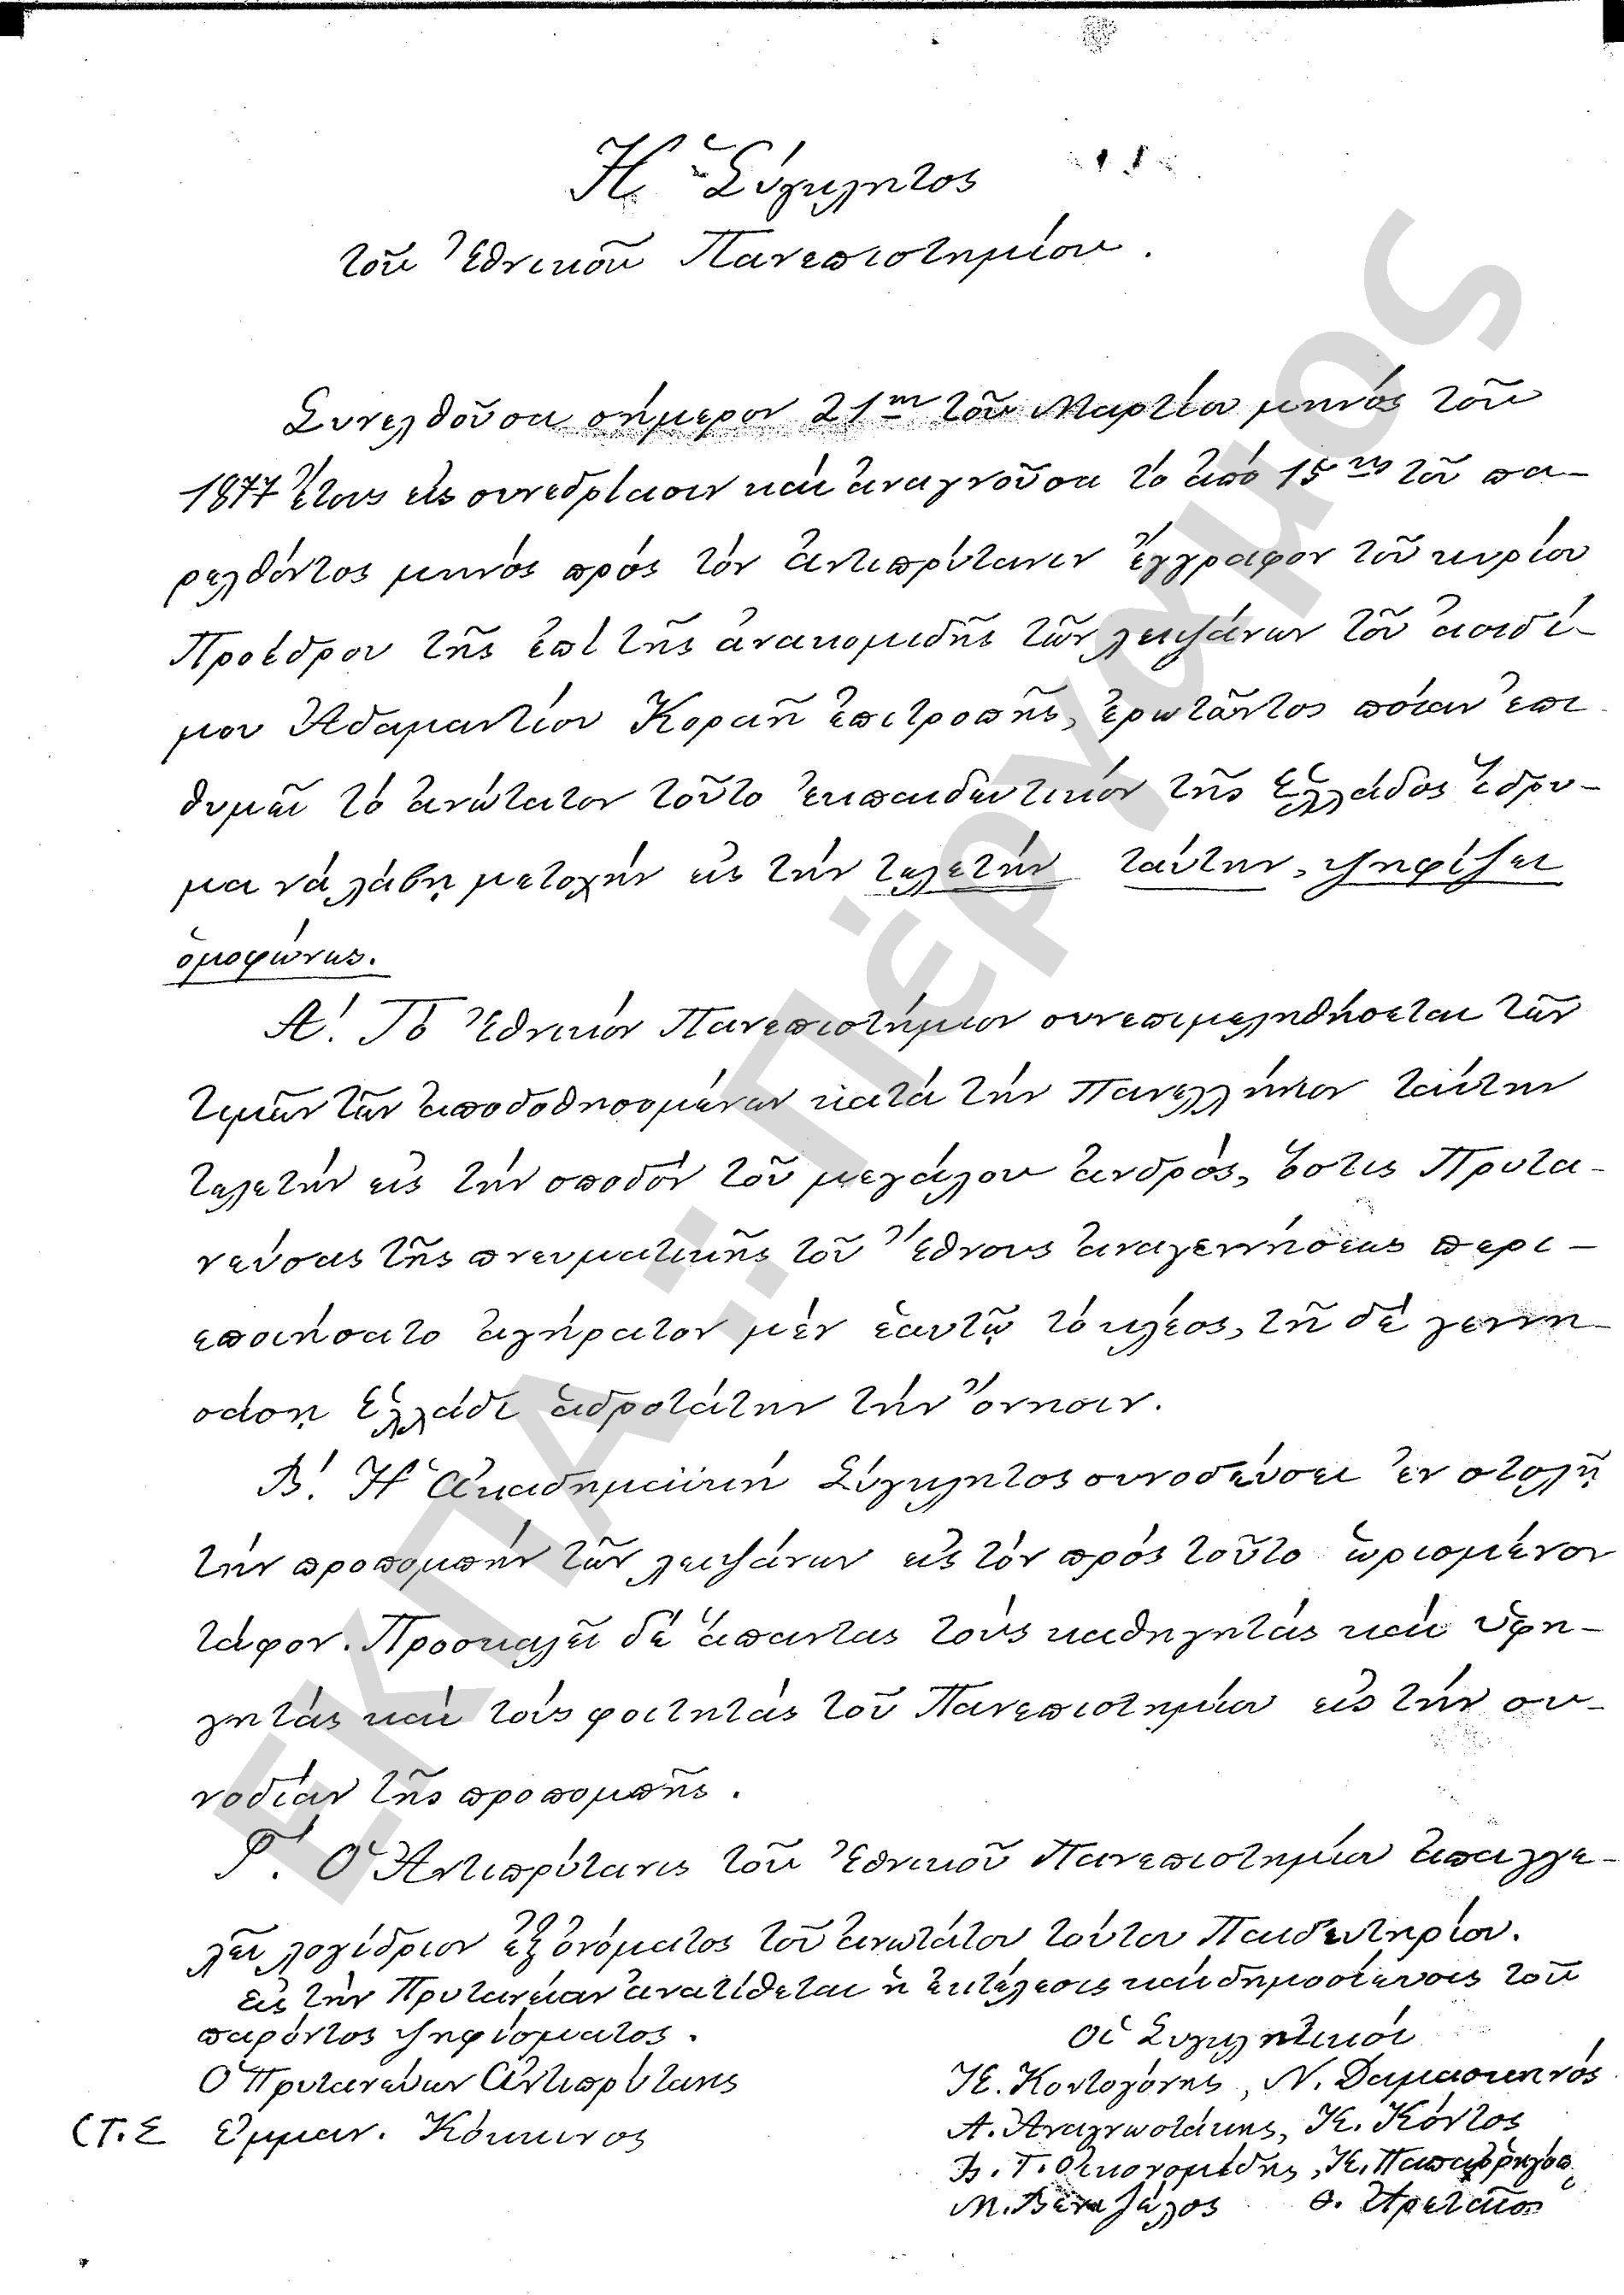 Ἡ Σύγκλητος
τοῦ Ἐθνικοῦ Πανεπιστημίου.
Συνελθοῦσα σήμερον 21ῃ τοῦ Μαρτίου μηνός τοῦ
1877 ἔτους εἰς συνεδρίασιν καί ἀναγνοῦσα τό ἀπό 15ης τοῦ πα-
ρελθόντος μηνός πρός τόν ἀντιπρύτανιν ἔγγραφον τοῦ κυρίου
Προέδρου τῆς ἐπί τῆς ἀνακομιδῆς τῶν λειψάνων τοῦ ἀοιδί-
μου Ἀδαμαντίου Κοραῆ ἐπιτροπῆς, ἐρωτῶντος ποίαν ἐπι
θυμεῖ τό ἀνώτατον τοῦτο ἐκπαιδευτικόν τῆς Ἑλλάδος ἵδρυ-
μα νά λάβῃ μετοχήν εἰς τήν τελετήν ταύτην, ψηφίζει
ὁμοφώνως.
Α΄. Τό Ἐθνικόν Πανεπιστήμιον συνεπιμεληθήσεται τῶν
τιμῶν τῶν ἀποδοθησομένων κατά τήν Πανελλήνιον ταύτην
τελετήν εἰς τήν σποδόν τοῦ μεγάλου ἀνδρός, ὅστις Πρυτα-
νεύσας τῆς πνευματικῆς τοῦ Ἔθνους ἀναγεννήσεως περι-
εποιήσατο ἀγήρατον μέν ἑαυτῷ τό κλέος, τῇ δέ γεννη-
σάσῃ Ἑλλάδι ἁδροτάτην τήν ὄνησιν.
Β΄. Ἡ Ἀκαδημαϊκή Σύγκλητος συνοδεύσει ἐν στολῇ
τήν προπομπήν τῶν λειψάνων εἰς τόν πρός τοῦτο ὡρισμένον
τάφον. Προσκαλεῖ δέ ἅπαντας τούς καθηγητάς καί ὑφη-
γητάς καί τούς φοιτητάς τοῦ Πανεπιστημίου εἰς τήν συ-
νοδίαν τῆς προπομπῆς.
Γ΄. Ὁ Ἀντιπρύτανις τοῦ Ἐθνικοῦ Πανεπιστημίου ἀπαγγε-
λεῖ λογίδριον ἐξ ὀνόματος τοῦ ἀνωτάτου τούτου Παιδευτηρίου.
Εἰς τήν Πρυτανείαν ἀνατίθεται ἡ ἐκτέλεσις καί δημοσίευσις τοῦ
παρόντος ψηφίσματος.
Οἱ Συγκλητικοί
Ὁ Πρυτανεύων Ἀντιπρύτανις
Κ. Κοντογόνης, Ν. Δαμασκηνός
(Τ.Σ Ἐμμαν. Κόκκινος
Α. Ἀναγνωστάκης, Κ. Κόντος
Β. Γ. Οἰκονομίδης, Κ. Παπαῤῥηγόπ
Μ. Βενιζέλος Θ. Ἀρεταῖος
ΕΚΠΑ.:.Πέργαμος